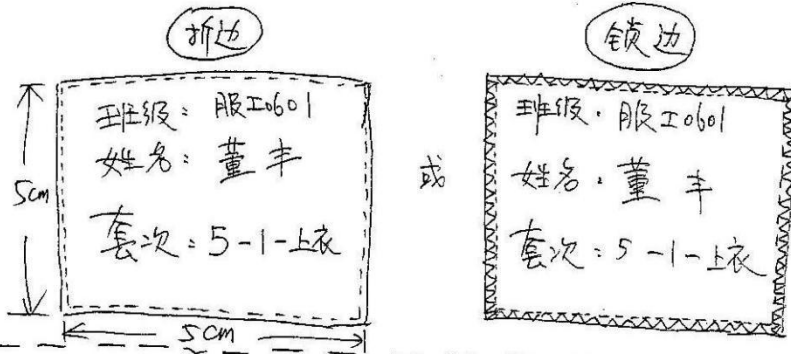 折边
锁边
5cm
班级：服工0601
姓名：董丰
套次：5-1-上衣
5cm
或
班级：服工0601
姓名：董丰
套次：5-1-上衣